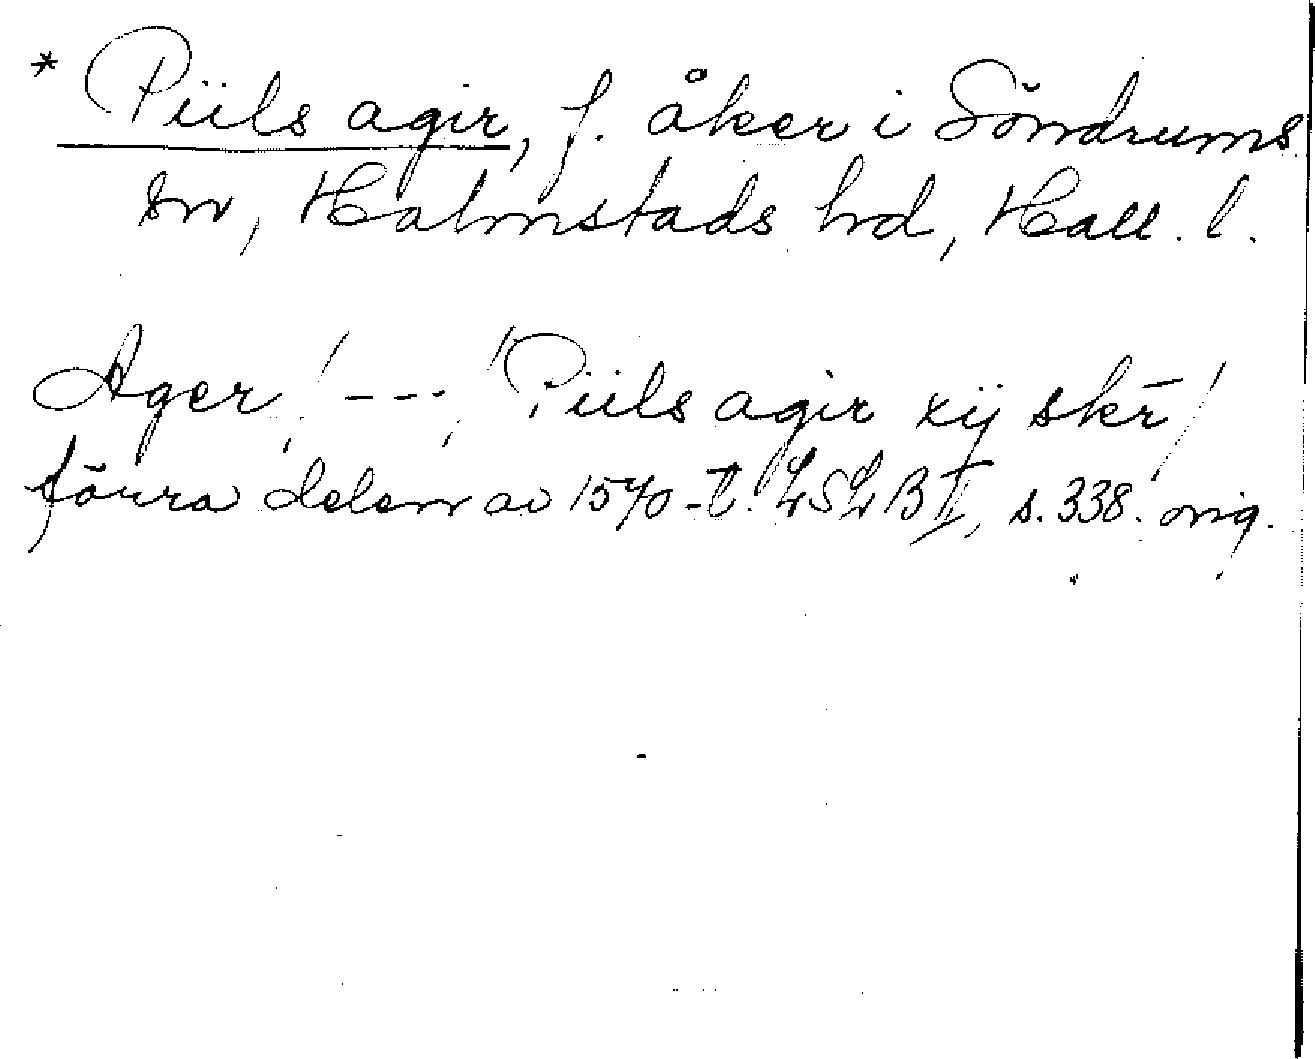 * Piils agir, f. åker i Söndrums
sn, Halmstads hd, Hall. l.
Ager / --- / Piils agir xij skr̄ /
förra delen av 1570-t. LSLB II, s. 338. orig.